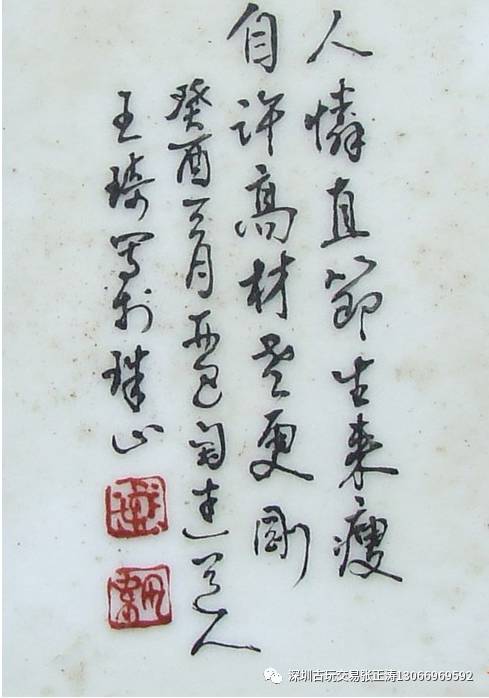 人憐直節生來瘦
自許高材老更剛
癸酉月西匋迷道人
王琦寫於珠山
深圳古玩交易张正涛13066969592